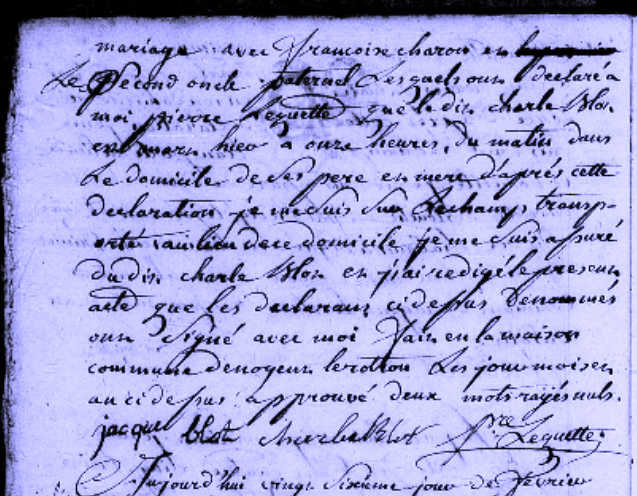 mariage avec françoise charon et
Le Second oncle paternel Lesquels ont declaré a
moi pierre Lequette que le dit charle Blot
est mort hier a onze heures du matin dans
Le domicile de Ses pere et mere d'après cette
declaration je me Suis Sur Lechamp transp-
orté au lieu de ce domicile je me Suis assuré
du dit charle Blot et j'ai redigé le present
acte que les declarant cidessus Denommés
ont Signé avec moi fait en la maison
commune de noyeu les jour mois et
an cidessus approuvé deux mots rayés nuls.
jacque blot charle Blot pre Lequette
Aujourd'hui vingt Sixieme jour de fevrier